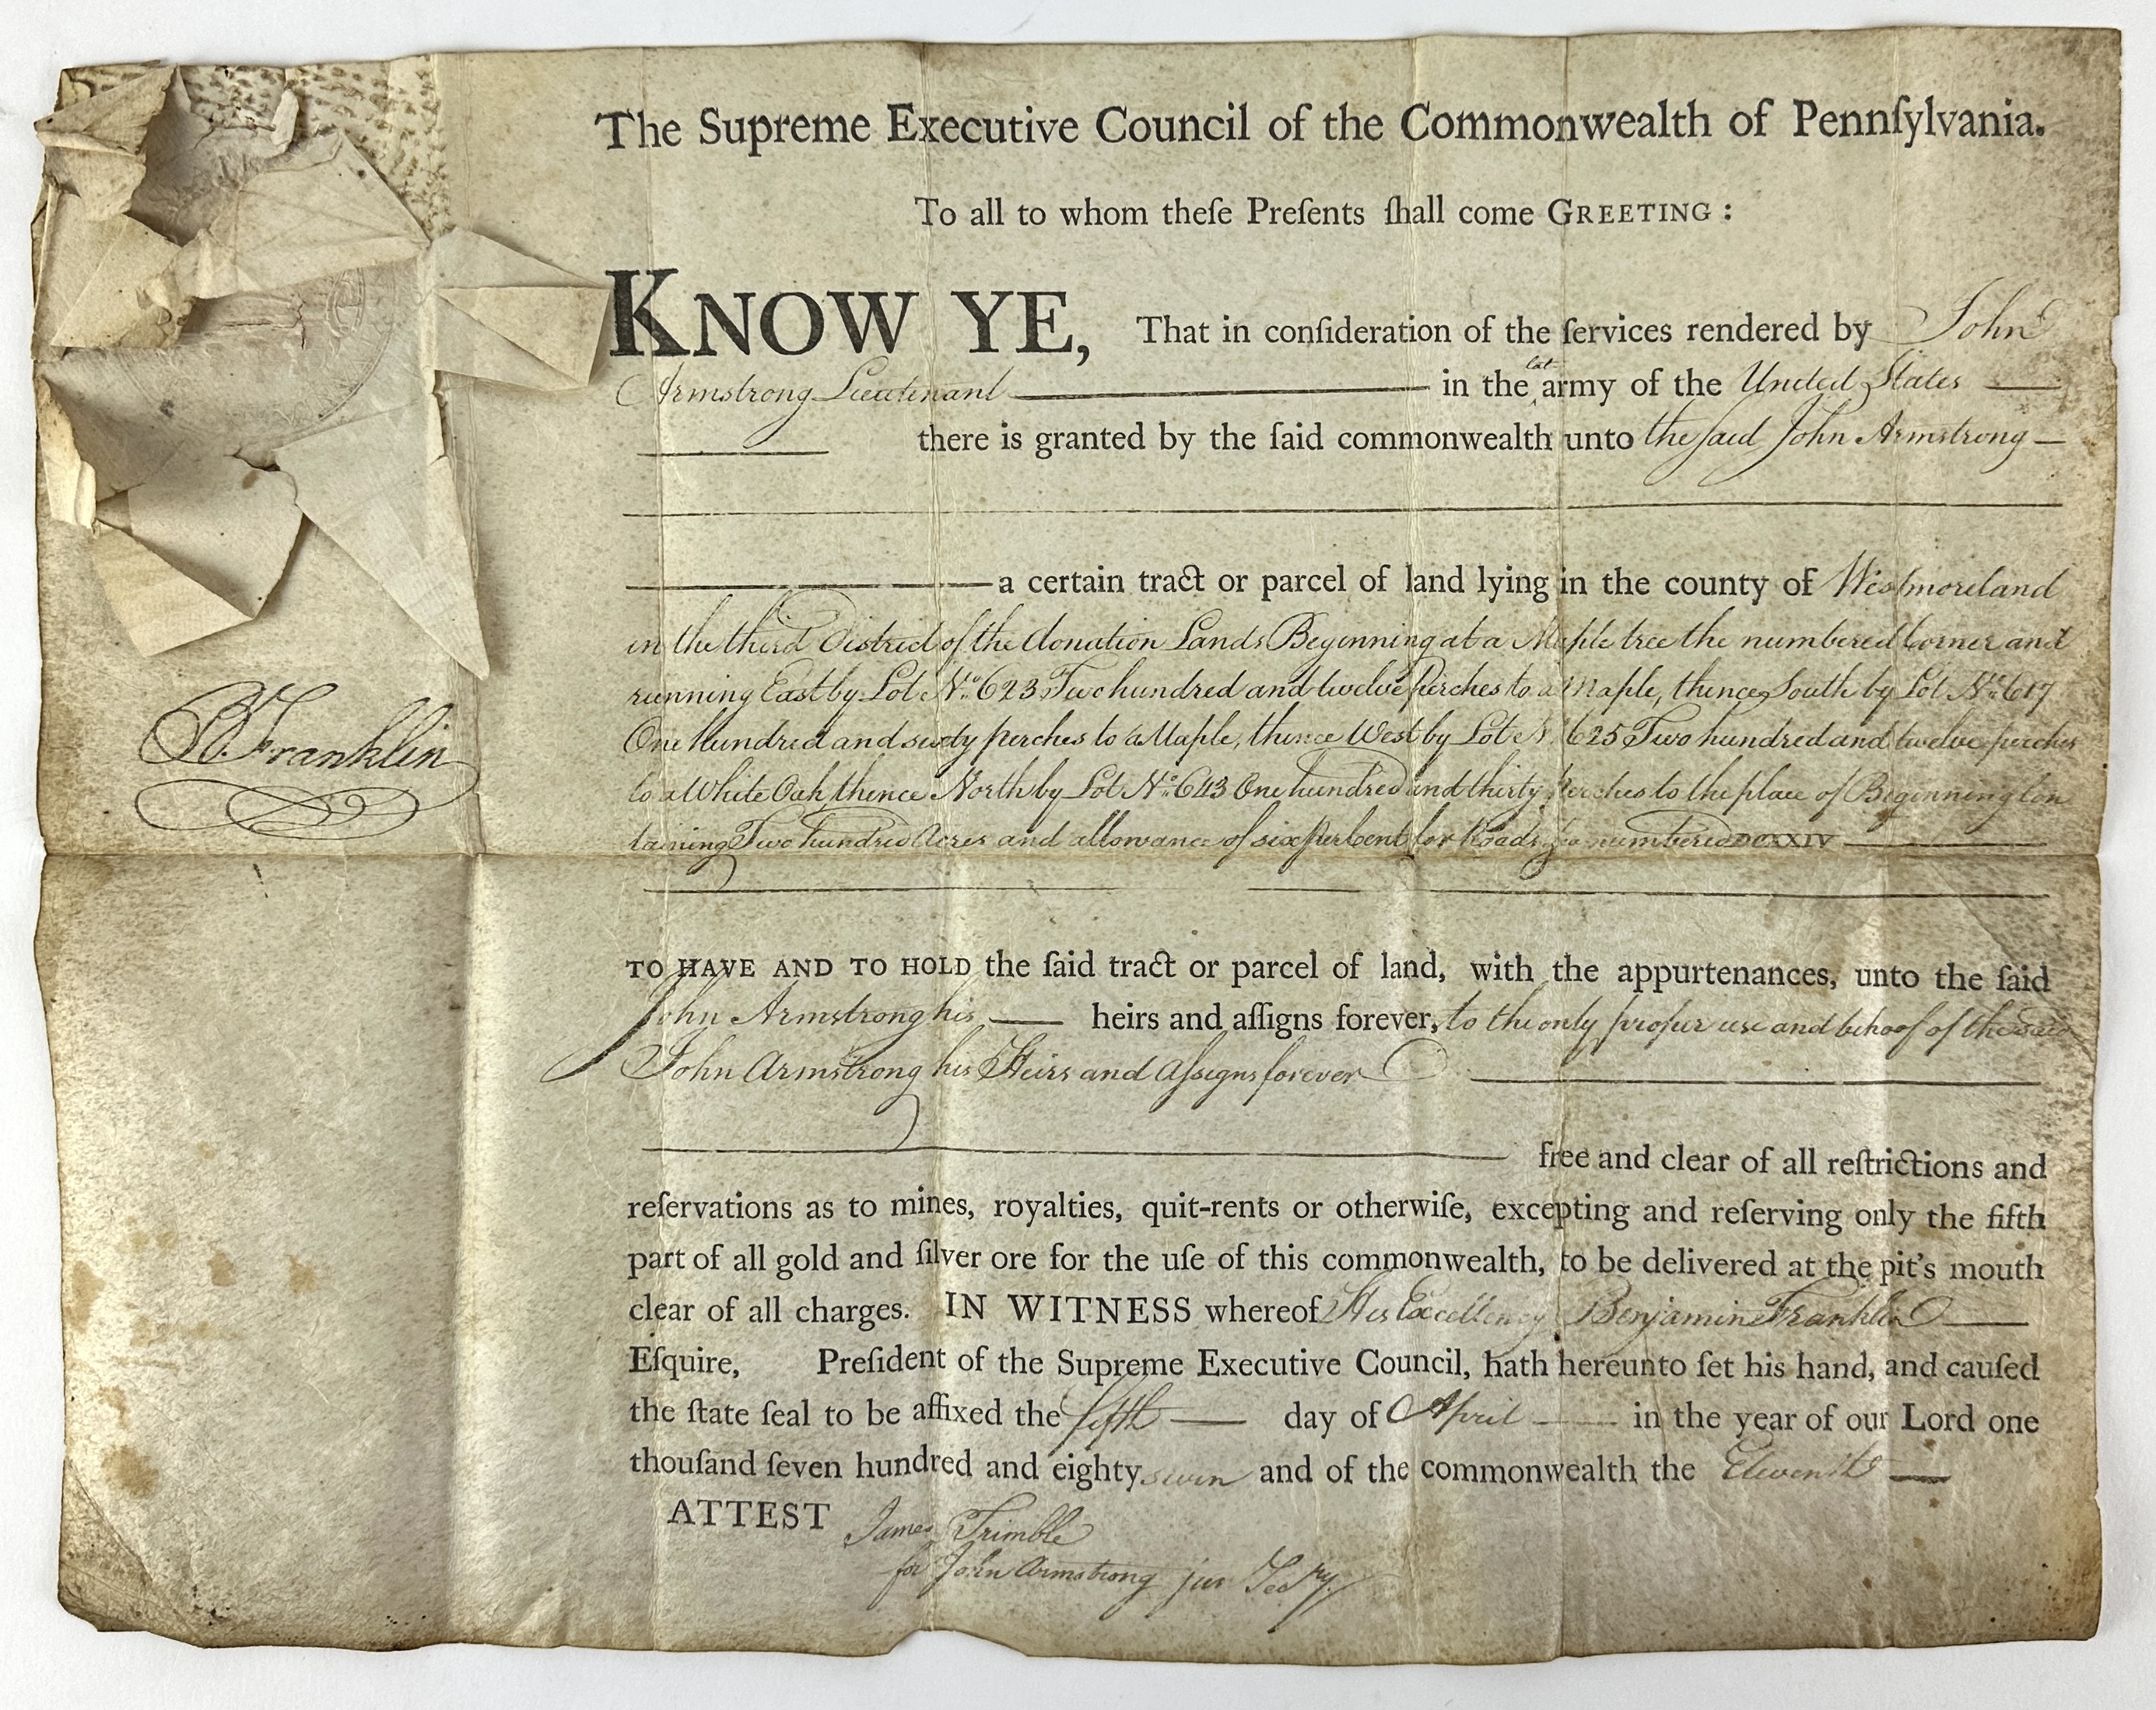 The Supreme Executive Council of the Commonwealth of Pennſylvania.
To all to whom theſe Preſents ſhall come GREETING :
KNOW YE, That in conſideration of the ſervices rendered by John
Armstrong Lieutenant in the late army of the United States
there is granted by the ſaid commonwealth unto the said John Armstrong
a certain tract or parcel of land lying in the county of Westmoreland
in the third District of the donation Lands Beginning at a Maple tree the numbered Corner and
running East by Lot No. 623 Two hundred and twelve perches to a Maple, thence South by Lot No. 617
One hundred and sixty perches to a Maple, thence West by Lot N. 625 Two hundred and twelve perches
to a White Oak thence North by Lot No. 643 One hundred and thirty perches to the place of Beginning Con
taining Two hundred Acres and allowance of six per Cent for Roads &c numbered DCXXIV
TO HAVE AND TO HOLD the ſaid tract or parcel of land, with the appurtenances, unto the ſaid
John Armstrong his heirs and aſſigns forever, to the only proper use and behoof of the said
John Armstrong his Heirs and Aſsigns forever
free and clear of all reſtrictions and
reſervations as to mines, royalties, quit-rents or otherwiſe, excepting and reſerving only the fifth
part of all gold and ſilver ore for the uſe of this commonwealth, to be delivered at the pit's mouth
clear of all charges. IN WITNESS whereof His Excellency Benjamin Franklin
Eſquire, Preſident of the Supreme Executive Council, hath hereunto ſet his hand, and cauſed
the ſtate ſeal to be affixed the fifth day of April in the year of our Lord one
thouſand ſeven hundred and eighty seven and of the commonwealth the Eleventh
ATTEST James Trimble
for John Armstrong jur Secry.
B. Franklin